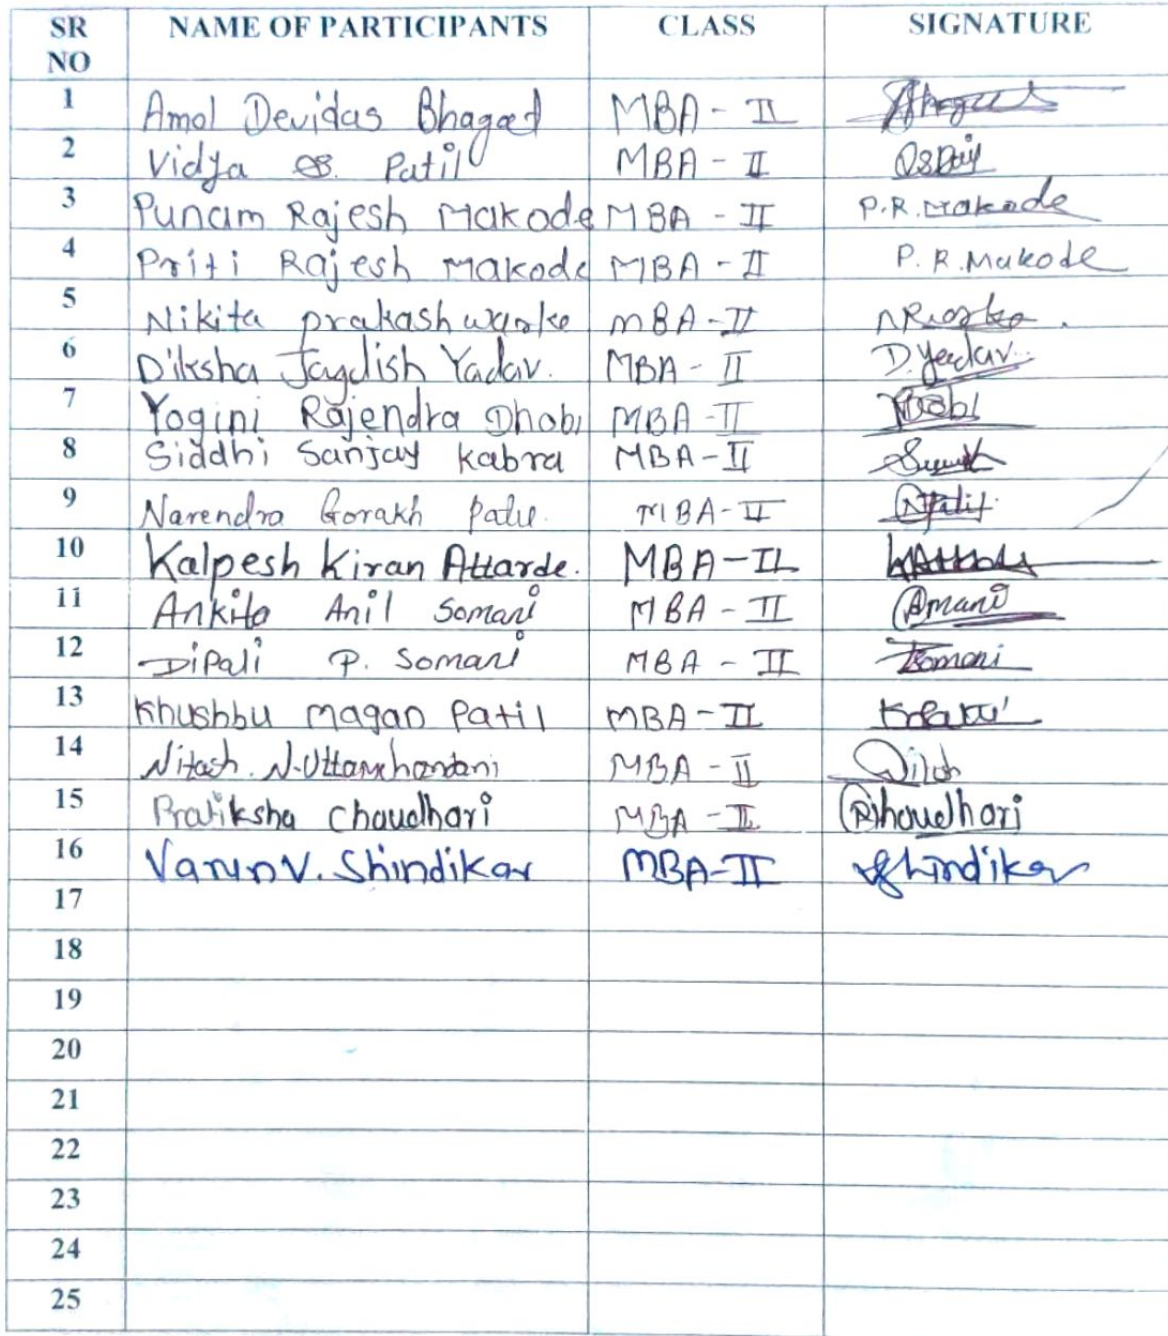 SR NO NAME OF PARTICIPANTS CLASS SIGNATURE
1 Amol Devidas Bhagat MBA - II
2 Vidya S. Patil MBA - II
3 Punam Rajesh Makode MBA - II P.R. Makode
4 Priti Rajesh Makode MBA - II P. R. Makode
5 Nikita prakash warke MBA - II
6 Diksha Jagdish Yadav. MBA - II D. Yadav
7 Yogini Rajendra Dhobi MBA - II
8 Siddhi Sanjay kabra MBA - II
9 Narendra Gorakh MBA - II
10 Kalpesh Kiran Attarde. MBA - II
11 Ankita Anil Somani MBA - II
12 Dipali P. Somani MBA - II
13 Khushbu magan Patil MBA - II
14 Nitash. N. Uttamchandani MBA - II
15 Pratiksha Chaudhari MBA - II
16 Varun V. Shindikar MBA-II Shindikar
17
18
19
20
21
22
23
24
25